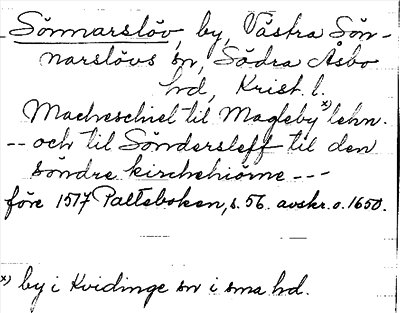 Sönnarslöv, by, Västra Sön-
narslövs sn, Södra Åsbo
hd, Krist. l.
Mackeschiel til Magleby x) lehn.
-- och til Söndersleff til den
söndre kirchehiörne ---
före 1517 Palteboken, s. 56. avskr. o. 1650.
x) by i Kvidinge sn i sma hd.